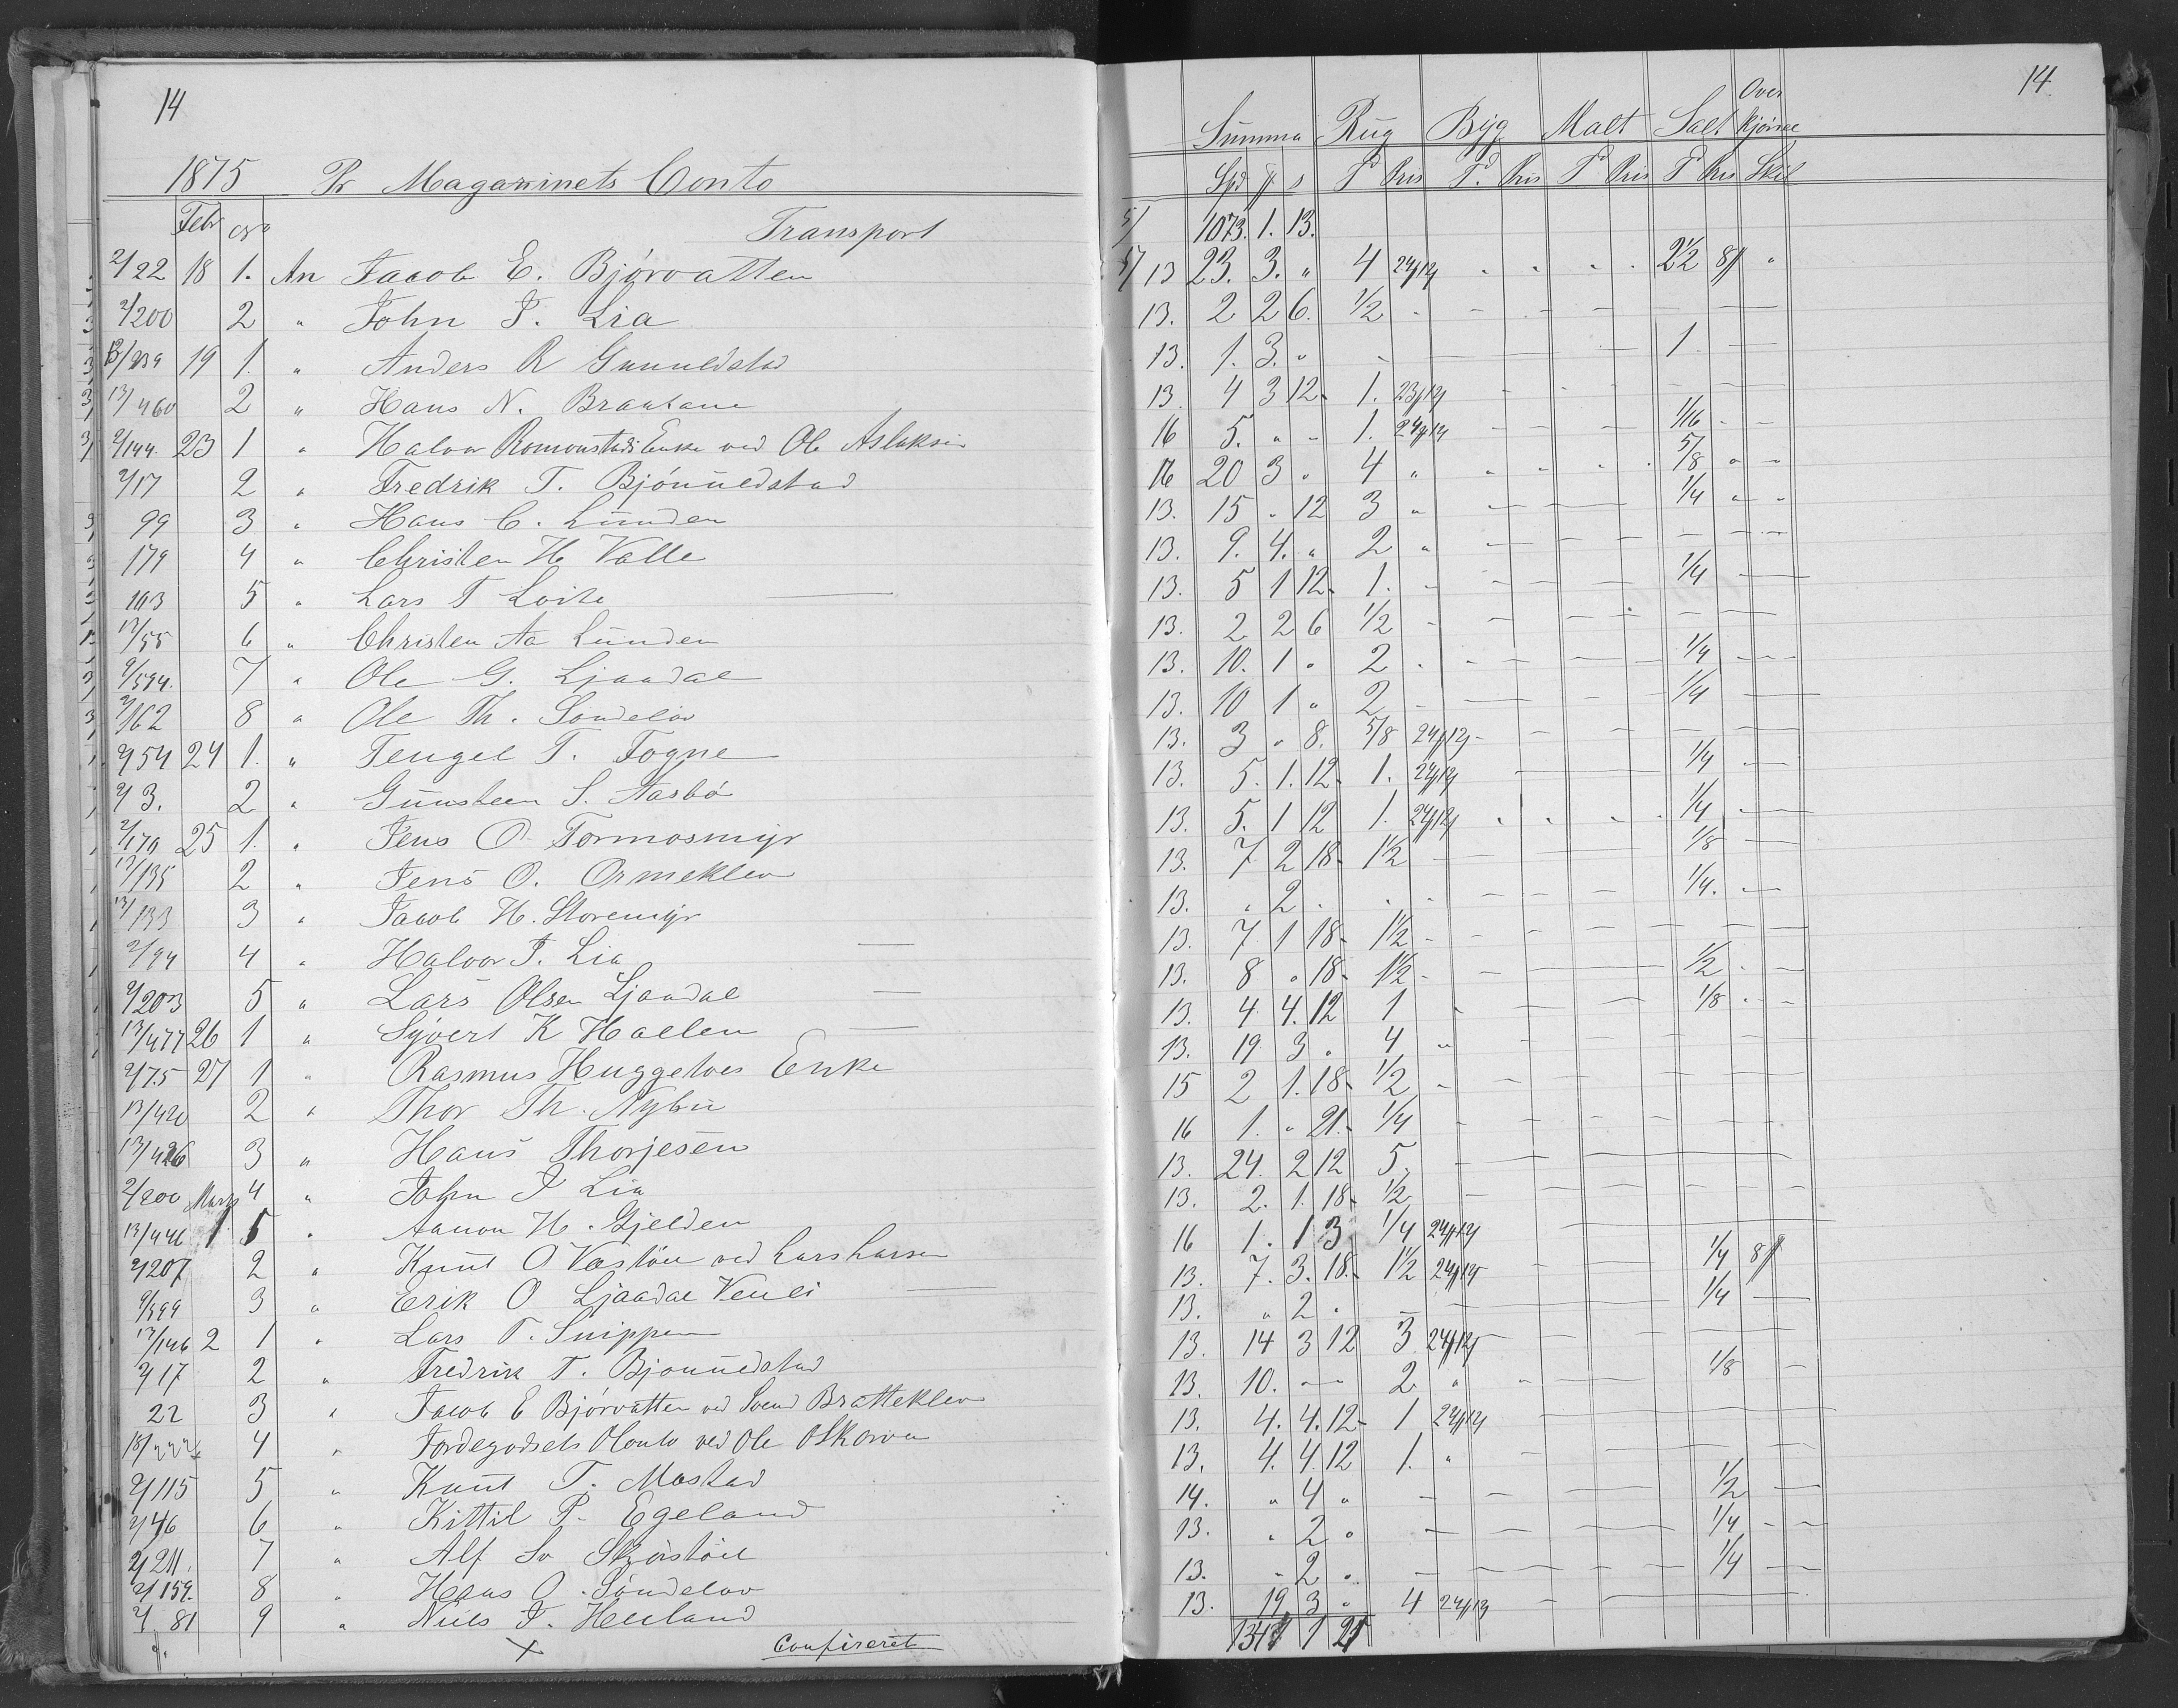 14
1875 Pr Magazinets Conto
Febr No Transport
2/22 18 1. An Jacob E. Bjørvatten
2/200 2 " John J. Lia
13/239 19 1. " Anders R Gunnldstad
13/460 2 " Hans N. Braatane
2/144. 23 1 " Halvor Romonstads Enke ved Ole Aslaksen
2/17 2 " Fredrik T. Bjønnüldstad
99 3 " Hans C. Lünden
179 4 " Christen H Valle
103 5 " Lars T Loite
13/55 6 " Christen Aa Lünden
2/594. 7 " Ole G. Ljaadal
2/162 8 " Ole Th. Sondeløv
2/54 24 1. " Tengel T. Fogne
2/3. 2 " Günsteen S. Aasbø
2/170 25 1. " Jens O. Tormosmyr
13/135 2 " Jens O. Ormeklev
13/133 3 " Jacob H. Storemyr
2/94 4 " Halvor J. Lia
2/203 5 " Lars Olsen Ljaadal
13/477 26 1 " Syvert K Hallen
2/75 27 1 " Rasmus Huggetoes Enke
13/420 2 " Thor Th. Nybü
13/426 3 " Hans Thorjesen
2/200 Marts 4 " John J Lia
13/446 1 5 " Aanon H. Gjelden
2/207 2 " Knüt O Vastøll ved Lars Larsen
2/599 3 " Erik O Ljaadal Venli
13/146 2 1 " Lars T. Snippen
2/17 2 " Fredrik T. Bjonnüldstad
22 3 " Jacob E Bjørvatten ved Svend Bratteklev
4 " Jordegodsets Conto ved Ole O Skorva
2/115 5 " Knüt T. Mostad
2/46 6 " Kittil P. Egeland
2/211. 7 " Alf Sv Skjørstøll
2/159. 8 " Hans O. Søndeløv
2/81 9 " Niels J. Heiland
× Confireret
14.
Summa Rüg Byg Malt Salt Over kjørsel
Spd # s T Pris T. Pris T Pris T Pris Skil
1073. 1. 13.
13 23. 3. " 4 24#12 2½ 8#
13. 2 2 6. ½
13. 1. 3. " 1.
13. 4 3 12 1. 23#12
16 5. " 1. 24#12 1/16
16 20 3 " 4 " 5/8
13. 15 " 12 3 " ¼
13. 9. 4. " 2 "
13. 5 1 12 1. ¼
13. 2 2 6 ½
13. 10. 1 " 2 ¼
13. 10 1 " 2 ¼
13. 3 " 8. 5/8 24#12
13. 5. 1. 12 1. 24#12 ¼
13. 5. 1 12 1. 24#12 ¼
13. 7 2 18 1½ 1/8
13. " 2 . ¼.
13. 7 1 18 1½
13. 8 " 18 1½ ½
13. 4 4. 12 1 1/8
13. 19 3 " 4 "
15 2 1. 18 ½
16 1. " 21. ¼
13. 24. 2 12 5.
13. 2. 1. 18 ½
16 1. 1 3 ¼ 24#12
13. 7. 3. 18. 1½ 24#12 ¼ 8#
13. " 2 . ¼
13. 14 3 12 3 24#12
13. 10. — 2 " 1/8
13. 4. 4. 12 1 24#12
13. 4. 4 12 1. "
14. " 4 " ½
13. " 2 " ¼
13. " 2 " ¼
13. 19 3 " 4 24#12